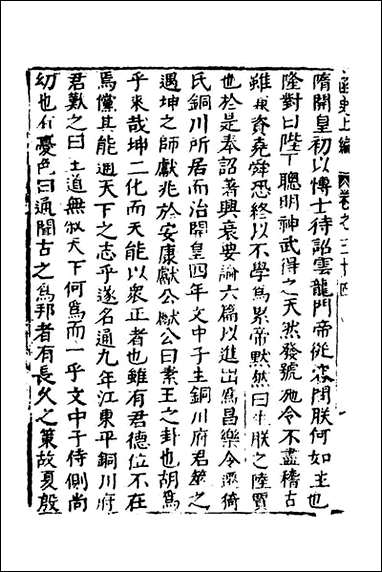 函史上編 卷之三十四
隋開皇初以博士待詔雲龍門帝從容問朕何如主也
隆對曰陛下聰明神武得之天然發號施令不盡稽古
雖負資堯舜恐終以不學爲累帝默然曰生朕之陸賈
也於是奉詔著興衰要論六篇以進出爲昌樂令遷猗
氏銅川所居而治開皇四年文中子生銅川府君筮之
遇坤之師獻兆於安康獻公獻公曰素王之卦也胡爲
乎來哉坤二化而天能以衆正者也雖有君德位不在
焉儻其能通天下之志乎遂名通九年江東平銅川府
君歎之曰王道無敘天下何爲而一乎文中子侍側尚
幼也有憂色曰通聞古之爲邦者有長久之策故夏殷